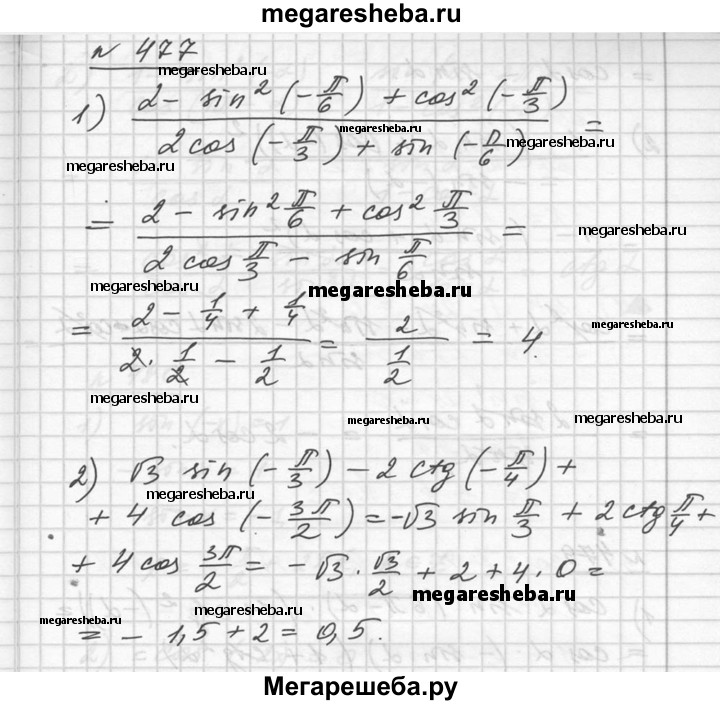 megaresheba.ru
n 477
megaresheba.ru
1) (2 - sin² (-π/6) + cos² (-π/3)) / (2 cos (-π/3) + sin (-π/6)) =
megaresheba.ru
megaresheba.ru
megaresheba.ru
= (2 - sin² π/6 + cos² π/3) / (2 cos π/3 - sin π/6) =
megaresheba.ru
megaresheba.ru
megaresheba.ru
megaresheba.ru
= (2 - 1/4 + 1/4) / (2 · 1/2 - 1/2) = 2 / (1/2) = 4.
megaresheba.ru
megaresheba.ru
megaresheba.ru
2) √3 sin (-π/3) - 2 ctg (-π/4) +
megaresheba.ru
+ 4 cos (-3π/2) = -√3 sin π/3 + 2 ctg π/4 +
megaresheba.ru
+ 4 cos 3π/2 = -√3 · √3/2 + 2 + 4 · 0 =
megaresheba.ru
megaresheba.ru
megaresheba.ru
= - 1,5 + 2 = 0,5.
Мегарешеба.ру